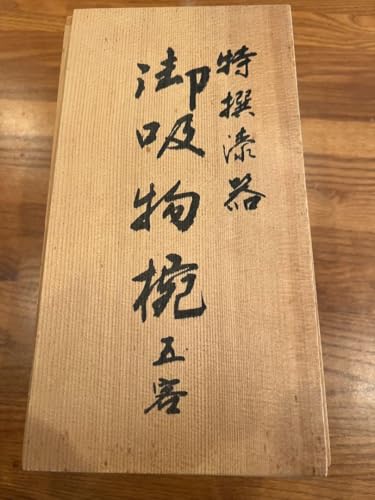 特撰漆器
御吸物椀五客